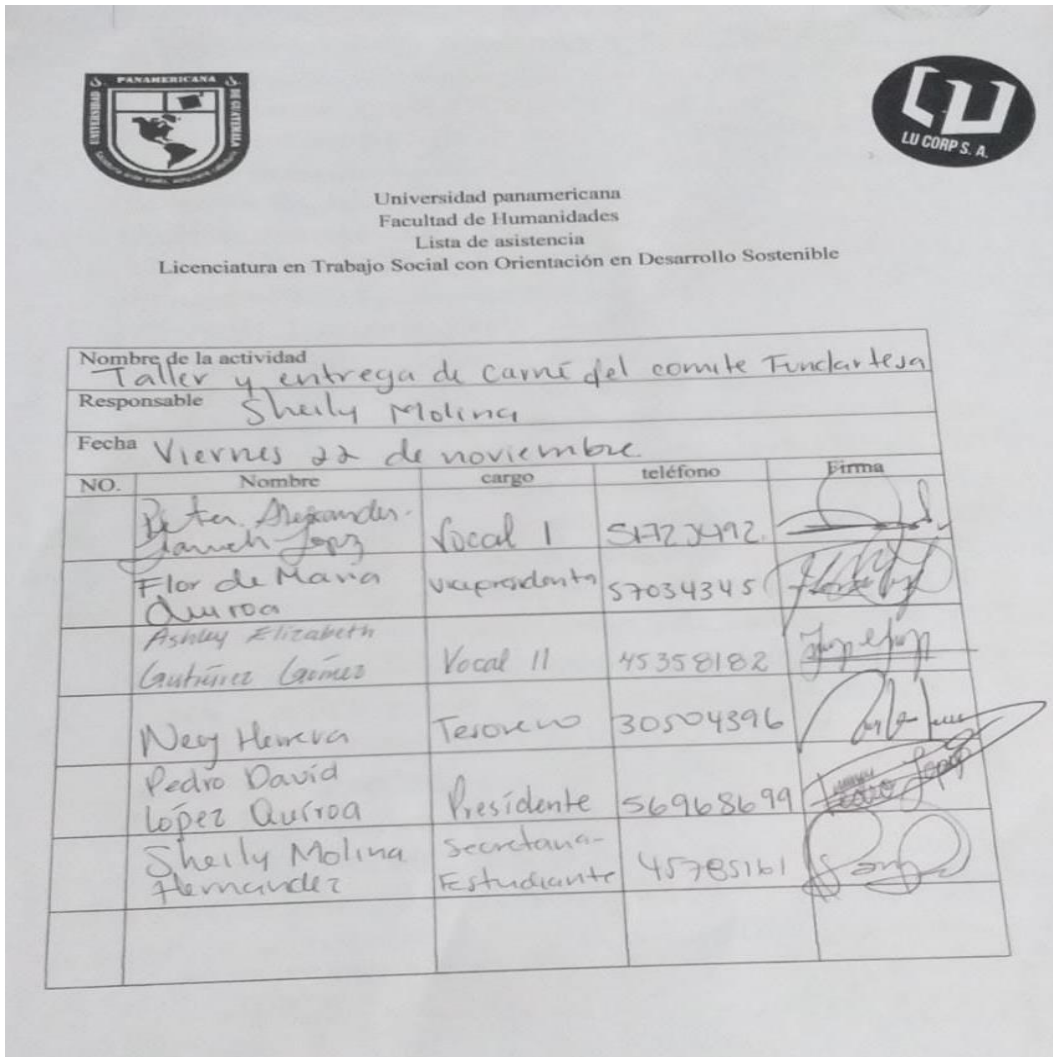 UNIVERSIDAD PANAMERICANA DE GUATEMALA
LU
LU CORP S. A.
Universidad panamericana
Facultad de Humanidades
Lista de asistencia
Licenciatura en Trabajo Social con Orientación en Desarrollo Sostenible
Nombre de la actividad
Taller y entrega de carné del comite Fundartesa
Responsable Sheily Molina
Fecha Viernes 22 de noviembre
NO. Nombre cargo teléfono Firma
Peter Alexander
Vocal I
Flor de Maria
Quiroa vicepresidenta 57034345
Ashley Elizabeth
Gutiérrez Gómez Vocal II 45358182
Herrera Tesorero 30504396
Pedro David
López Quiroa Presidente 56968699
Sheily Molina Secretaria-
Hernandez Estudiante 45785161